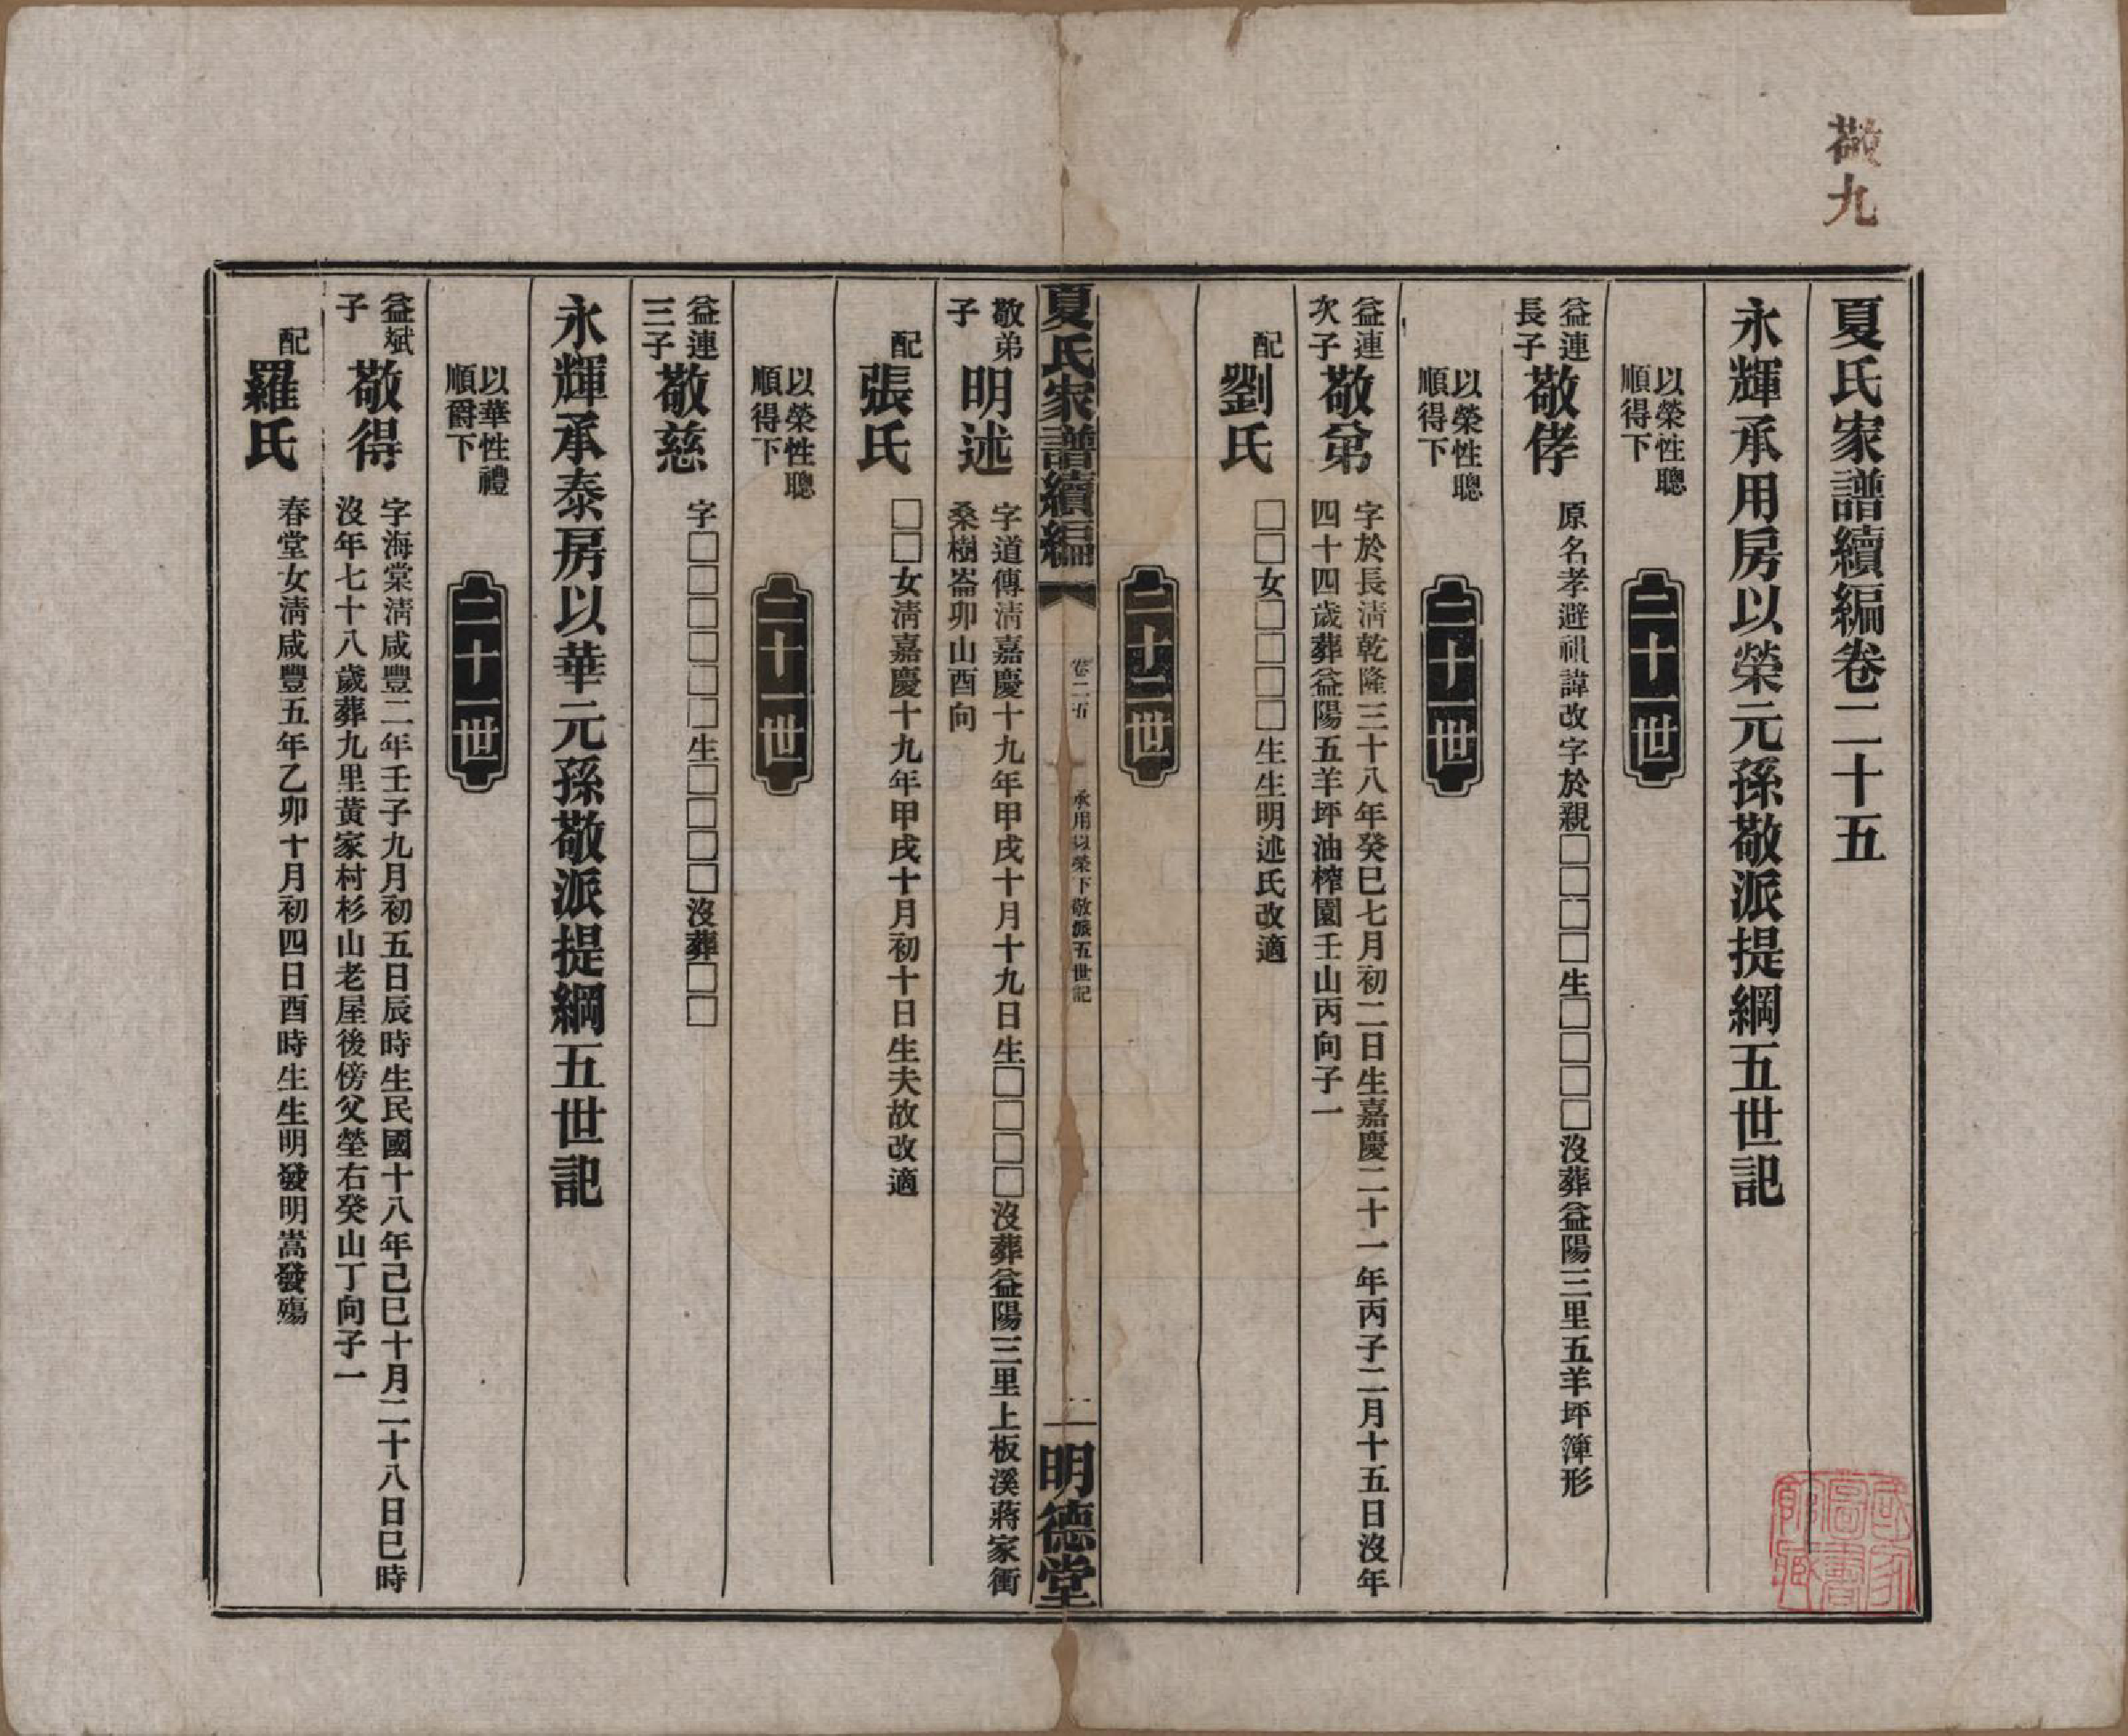 敬九
夏氏家譜續編卷二十五
永輝承用房以榮元孫敬派提綱五世記
以榮性聰
順得下
二十一世
益連
長子
敬侾
原名孝避祖諱改字於親□□□□生□□□□沒葬益陽三里五羊坪簞形
以榮性聰
順得下
二十一世
益連
次子
敬弟
字於長淸乾隆三十八年癸巳七月初二日生嘉慶二十一年丙子二月十五日沒年
四十四歲葬益陽五羊坪油榨園壬山丙向子一
配
劉氏
□□女□□□□生生明述氏改適
二十二世
夏氏家譜續編
卷二五
承用以榮下敬派五世記
一
明德堂
敬弟
子
明述
字道傳淸嘉慶十九年甲戌十月十九日生□□□□沒葬益陽三里上板溪蔣家衝
桑樹崙卯山酉向
配
張氏
□□女淸嘉慶十九年甲戌十月初十日生夫故改適
以榮性聰
順得下
二十一世
益連
三子
敬慈
字□□□□□□生□□□□沒葬□□
永輝承泰房以華元孫敬派提綱五世記
以華性禮
順爵下
二十一世
益斌
子
敬得
字海棠淸咸豐二年壬子九月初五日辰時生民國十八年己巳十月二十八日巳時
沒年七十八歲葬九里黃家村杉山老屋後傍父塋右癸山丁向子一
配
羅氏
春堂女淸咸豐五年乙卯十月初四日酉時生生明發明嵩發殤